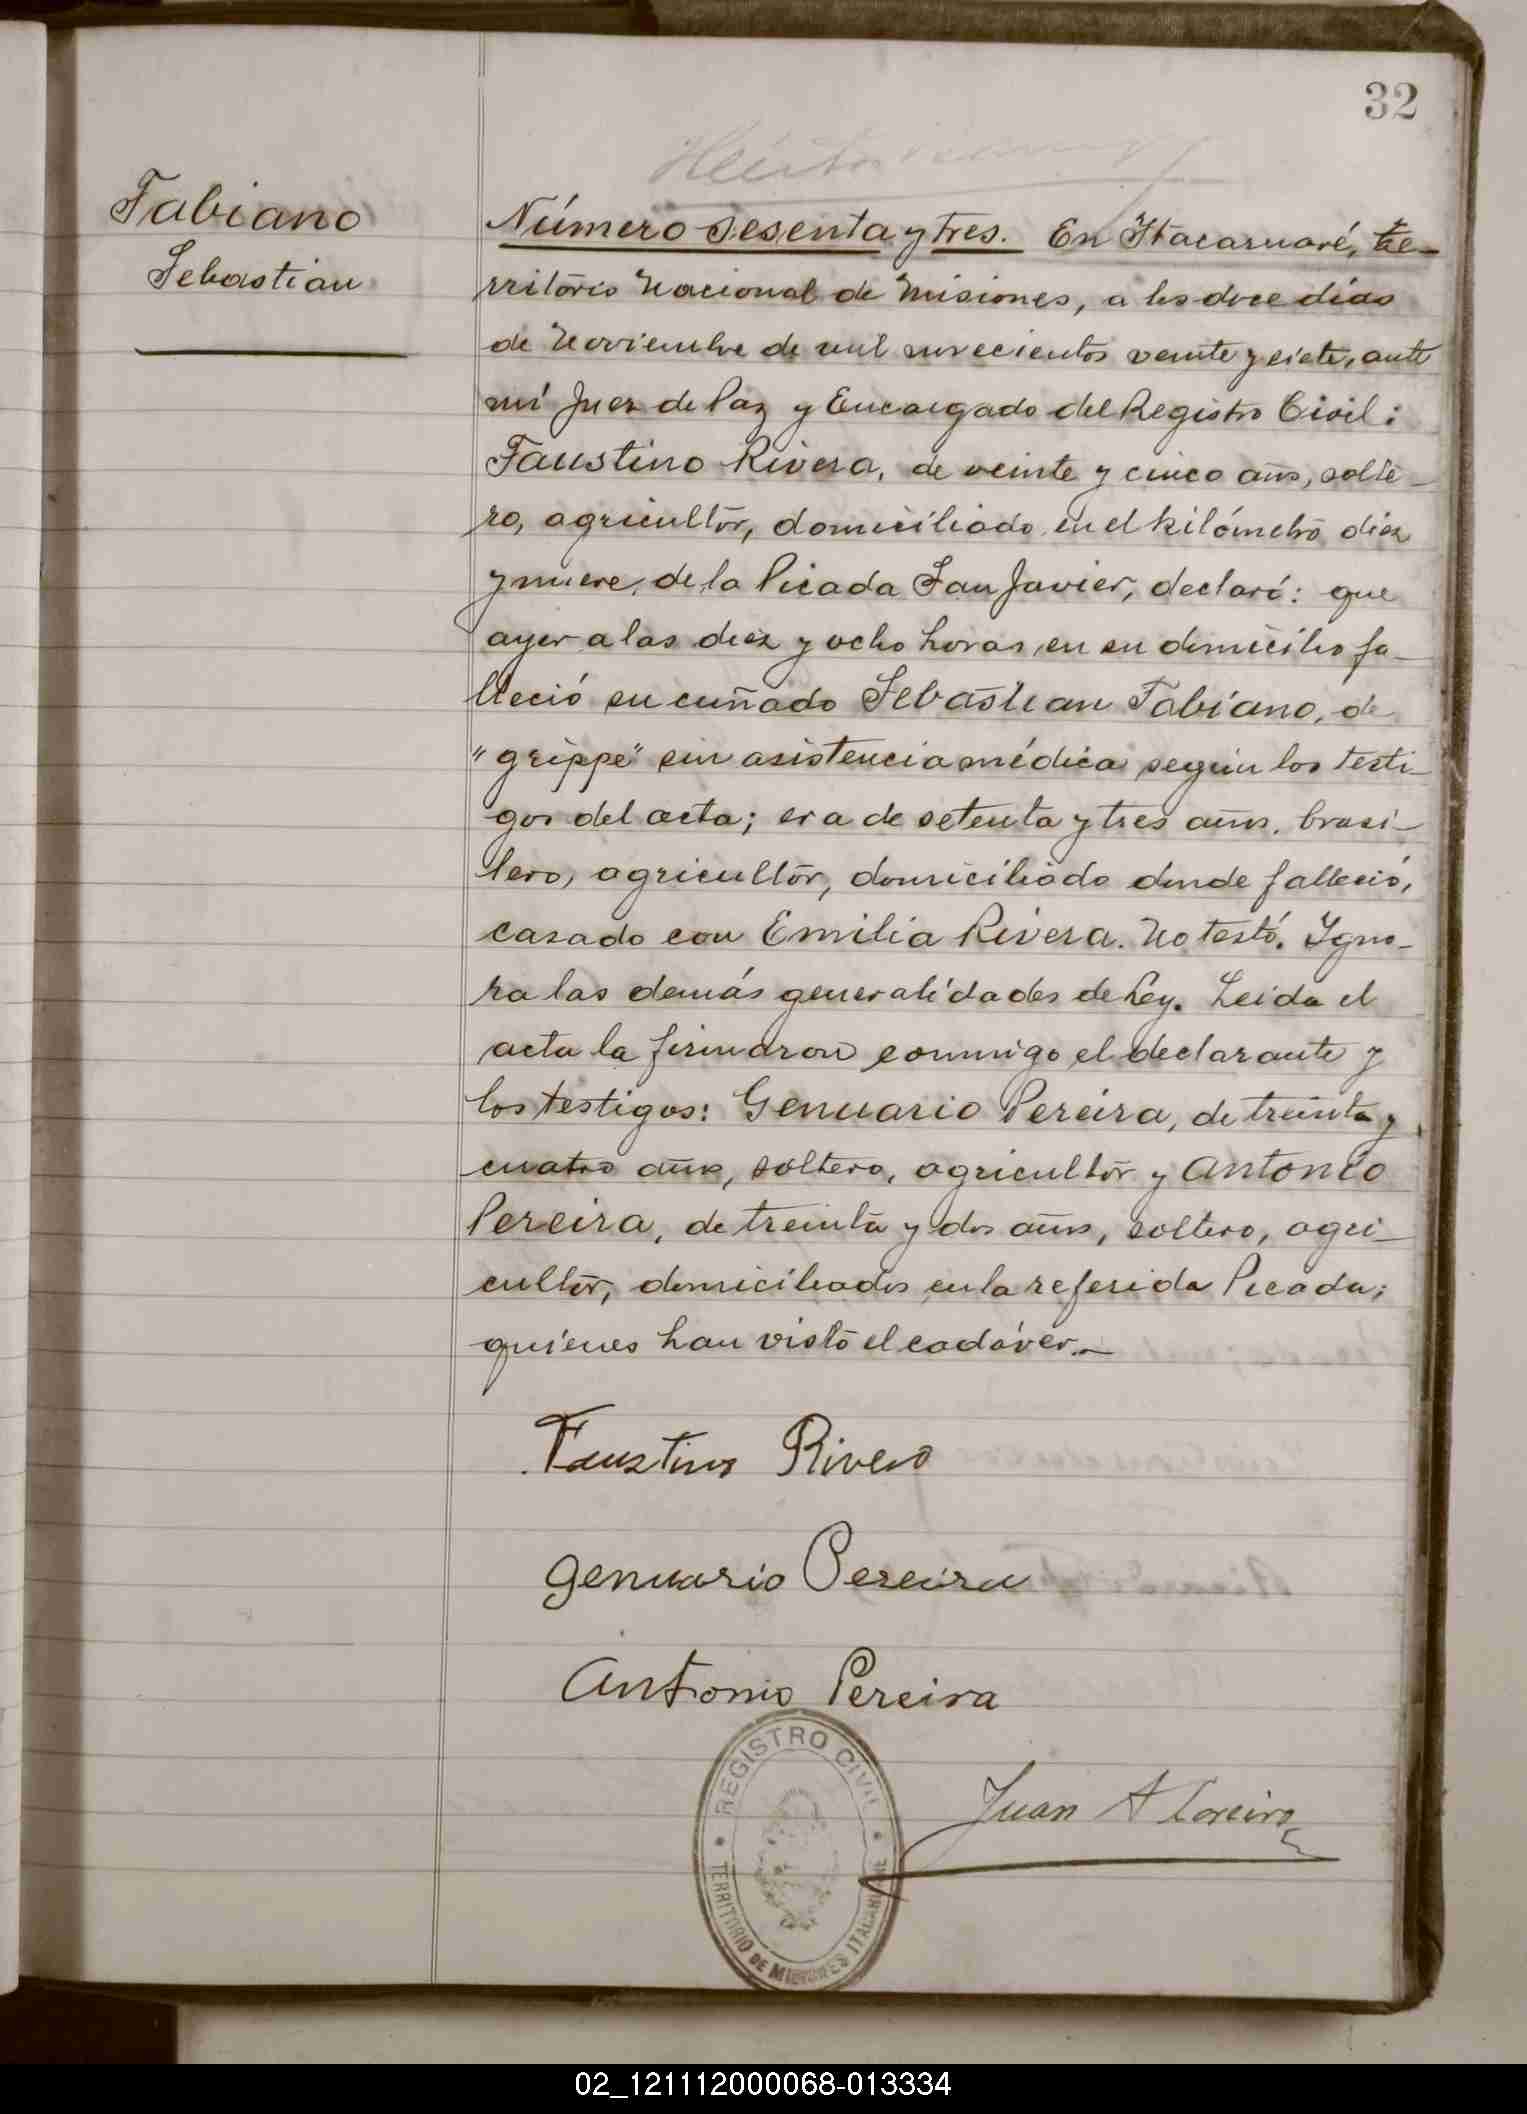 32
Fabiano
Sebastian
Número sesenta y tres. En Itacaruaré, te-
rritorio Nacional de Misiones, a los doce dias
de Noviembre de mil novecientos veinte y siete, ante
mí Juez de Paz y Encargado del Registro Civil:
Faustino Rivera, de veinte y cinco años, solte-
ro, agricultor, domiciliado en el kilómetro diez
y nueve, de la Picada San Javier, declaró: que
ayer a las diez y ocho horas, en su domicilio fa-
lleció su cuñado Sebastian Fabiano, de
"grippe" sin asistencia médica según los testi-
gos del acta; era de setenta y tres años, brasi-
lero, agricultor, domiciliado donde falleció,
casado con Emilia Rivera. No testó. Igno-
ra las demás generalidades de Ley. Leida el
acta la firmaron conmigo el declarante y
los testigos: Genuario Pereira, de treinta y
cuatro años, soltero, agricultor y Antonio
Pereira, de treinta y dos años, soltero, agri-
cultor, domiciliados en la referida Picada;
quienes han visto el cadáver.—
Faustino Rivero
Genuario Pereira
Antonio Pereira
REGISTRO CIVIL
TERRITORIO DE MISIONES ITACARUARE
Juan A
02_121112000068-013334